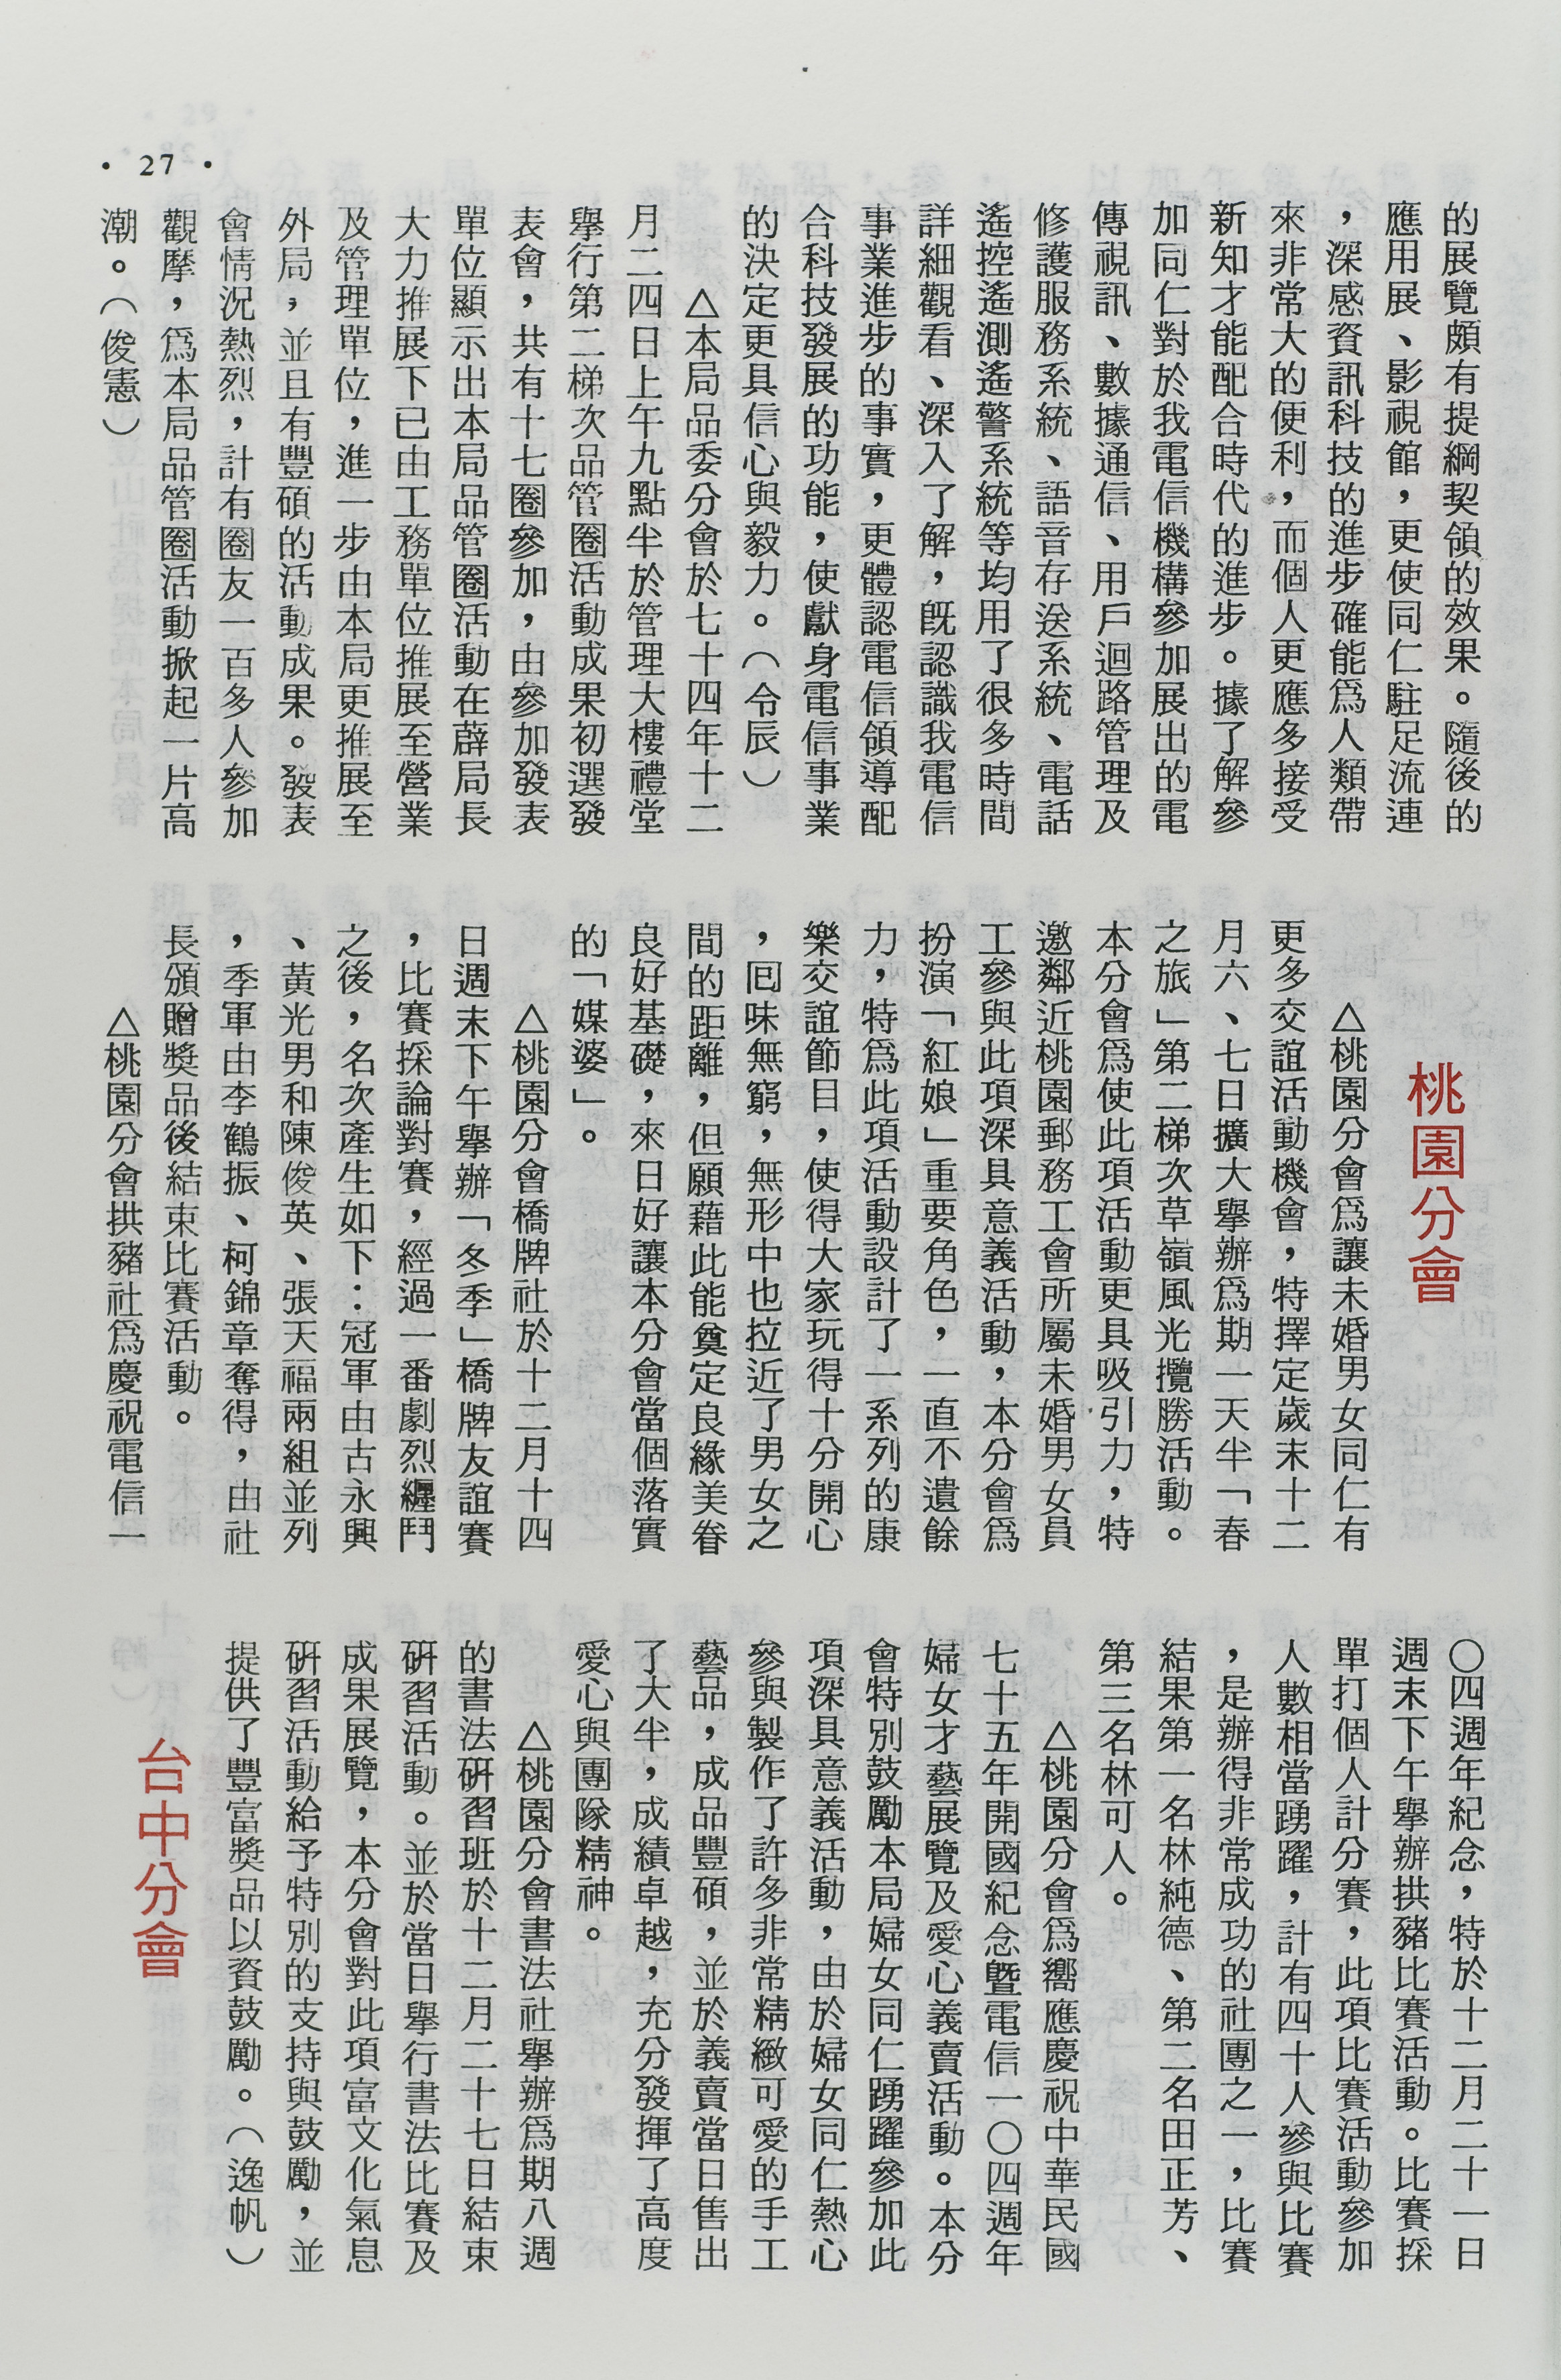 的展覽頗有提綱契領的效果。隨後的
應用展、影視館，更使同仁駐足流連
，深感資訊科技的進步確能爲人類帶
來非常大的便利，而個人更應多接受
新知才能配合時代的進步。據了解參
加同仁對於我電信機構參加展出的電
傳視訊、數據通信、用戶迴路管理及
修護服務系統、語音存送系統、電話
遙控遙測遙警系統等均用了很多時間
詳細觀看、深入了解，既認識我電信
事業進步的事實，更體認電信領導配
合科技發展的功能，使獻身電信事業
的決定更具信心與毅力。（令辰）
△本局品委分會於七十四年十二
月二四日上午九點半於管理大樓禮堂
舉行第二梯次品管圈活動成果初選發
表會，共有十七圈參加，由參加發表
單位顯示出本局品管圈活動在薜局長
大力推展下已由工務單位推展至營業
及管理單位，進一步由本局更推展至
外局，並且有豐碩的活動成果。發表
會情況熱烈，計有圈友一百多人參加
觀摩，爲本局品管圈活動掀起一片高
潮。（俊憲）
桃園分會
△桃園分會爲讓未婚男女同仁有
更多交誼活動機會，特擇定歲末十二
月六、七日擴大舉辦爲期一天半「春
之旅」第二梯次草嶺風光攬勝活動。
本分會爲使此項活動更具吸引力，特
邀鄰近桃園郵務工會所屬未婚男女員
工參與此項深具意義活動，本分會爲
扮演「紅娘」重要角色，一直不遺餘
力，特爲此項活動設計了一系列的康
樂交誼節目，使得大家玩得十分開心
，回味無窮，無形中也拉近了男女之
間的距離，但願藉此能奠定良緣美眷
良好基礎，來日好讓本分會當個落實
的「媒婆」。
△桃園分會橋牌社於十二月十四
日週末下午舉辦「冬季」橋牌友誼賽
，比賽採論對賽，經過一番劇烈纏鬥
之後，名次產生如下：冠軍由古永興
、黃光男和陳俊英、張天福兩組並列
，季軍由李鶴振、柯錦章奪得，由社
長頒贈獎品後結束比賽活動。
△桃園分會拱豬社爲慶祝電信一
〇四週年紀念，特於十二月二十一日
週末下午舉辦拱豬比賽活動。比賽採
單打個人計分賽，此項比賽活動參加
人數相當踴躍，計有四十人參與比賽
，是辦得非常成功的社團之一，比賽
結果第一名林純德、第二名田正芳、
第三名林可人。
△桃園分會爲嚮應慶祝中華民國
七十五年開國紀念曁電信一〇四週年
婦女才藝展覽及愛心義賣活動。本分
會特別鼓勵本局婦女同仁踴躍參加此
項深具意義活動，由於婦女同仁熱心
參與製作了許多非常精緻可愛的手工
藝品，成品豐碩，並於義賣當日售出
了大半，成績卓越，充分發揮了高度
愛心與團隊精神。
△桃園分會書法社舉辦爲期八週
的書法研習班於十二月二十七日結束
研習活動。並於當日舉行書法比賽及
成果展覽，本分會對此項富文化氣息
研習活動給予特別的支持與鼓勵，並
提供了豐富獎品以資鼓勵。（逸帆）
台中分會
• 27 •